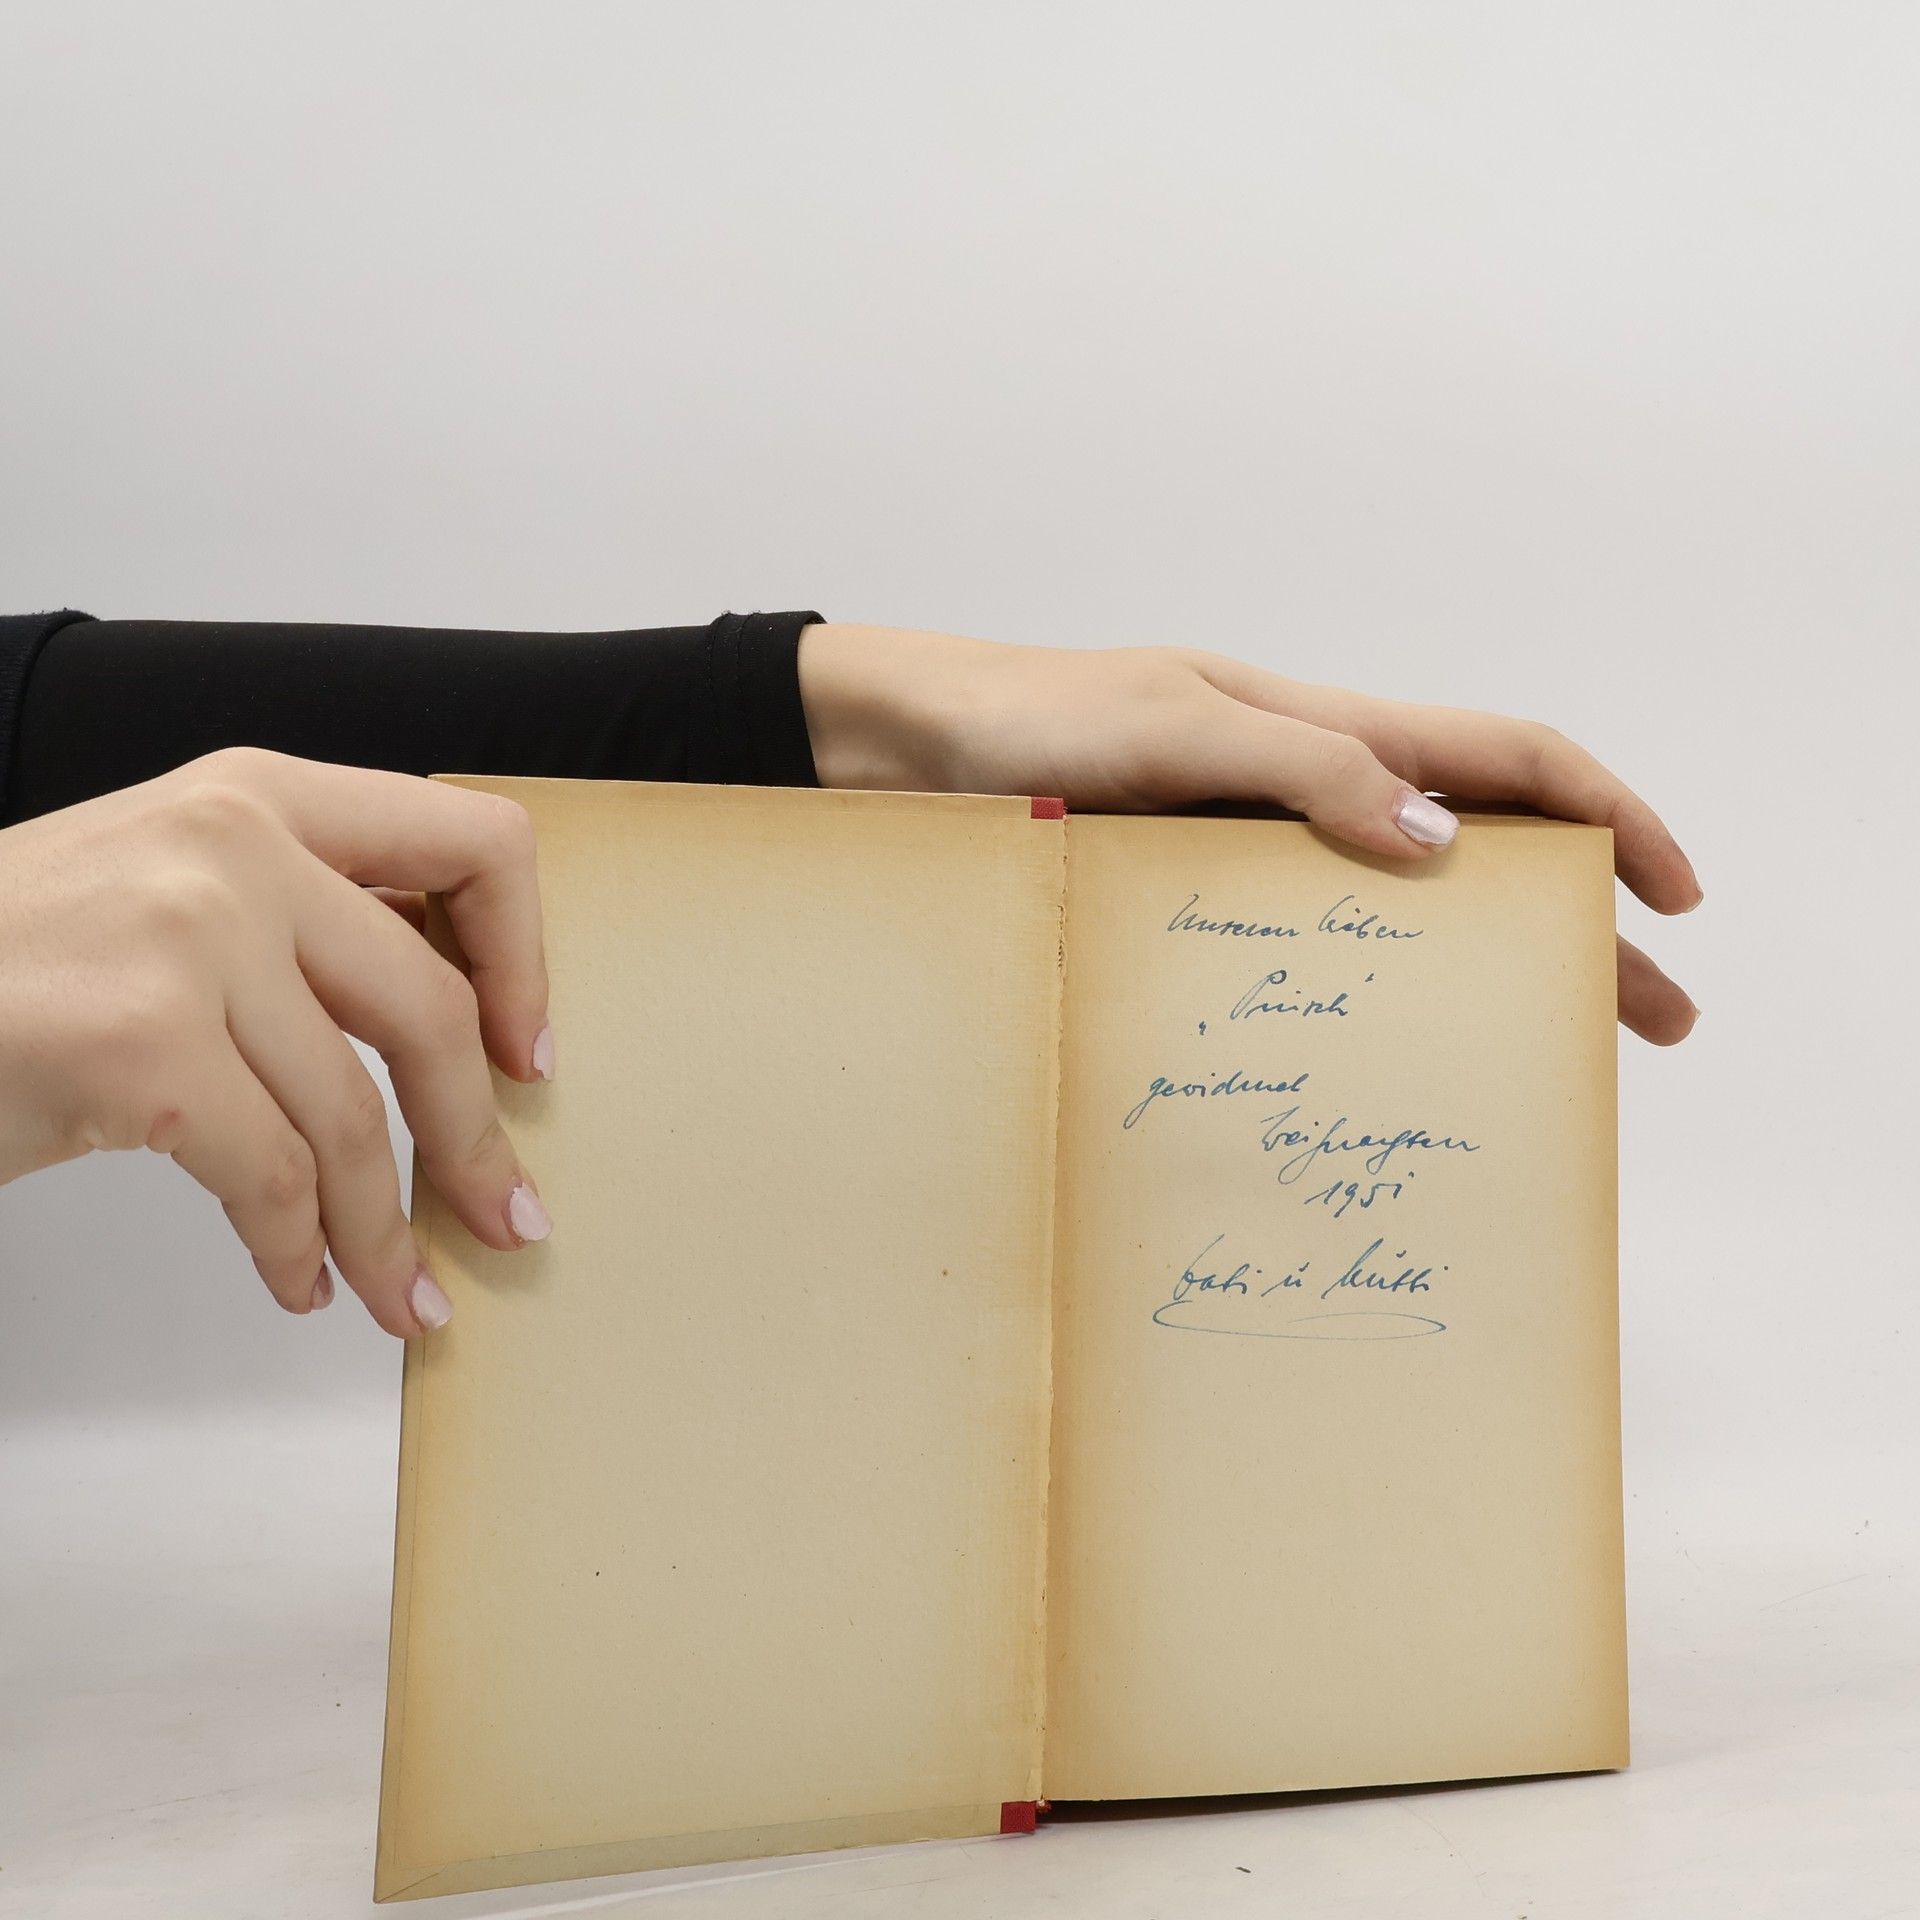 Unserem lieben
„Pinsch“
gewidmet
Weihnachten
1951
Vati u Mutti